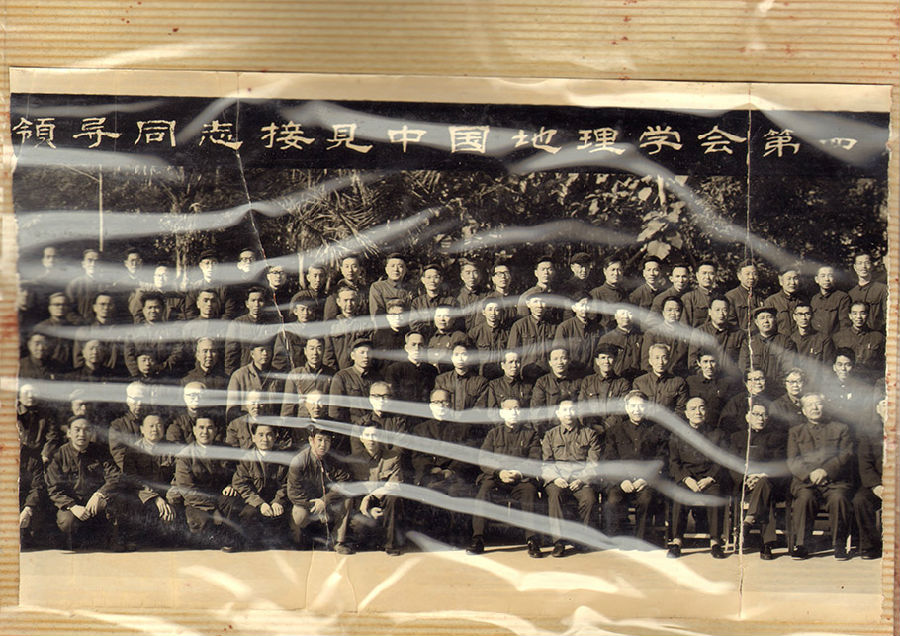 領导同志接見中国地理学会第四